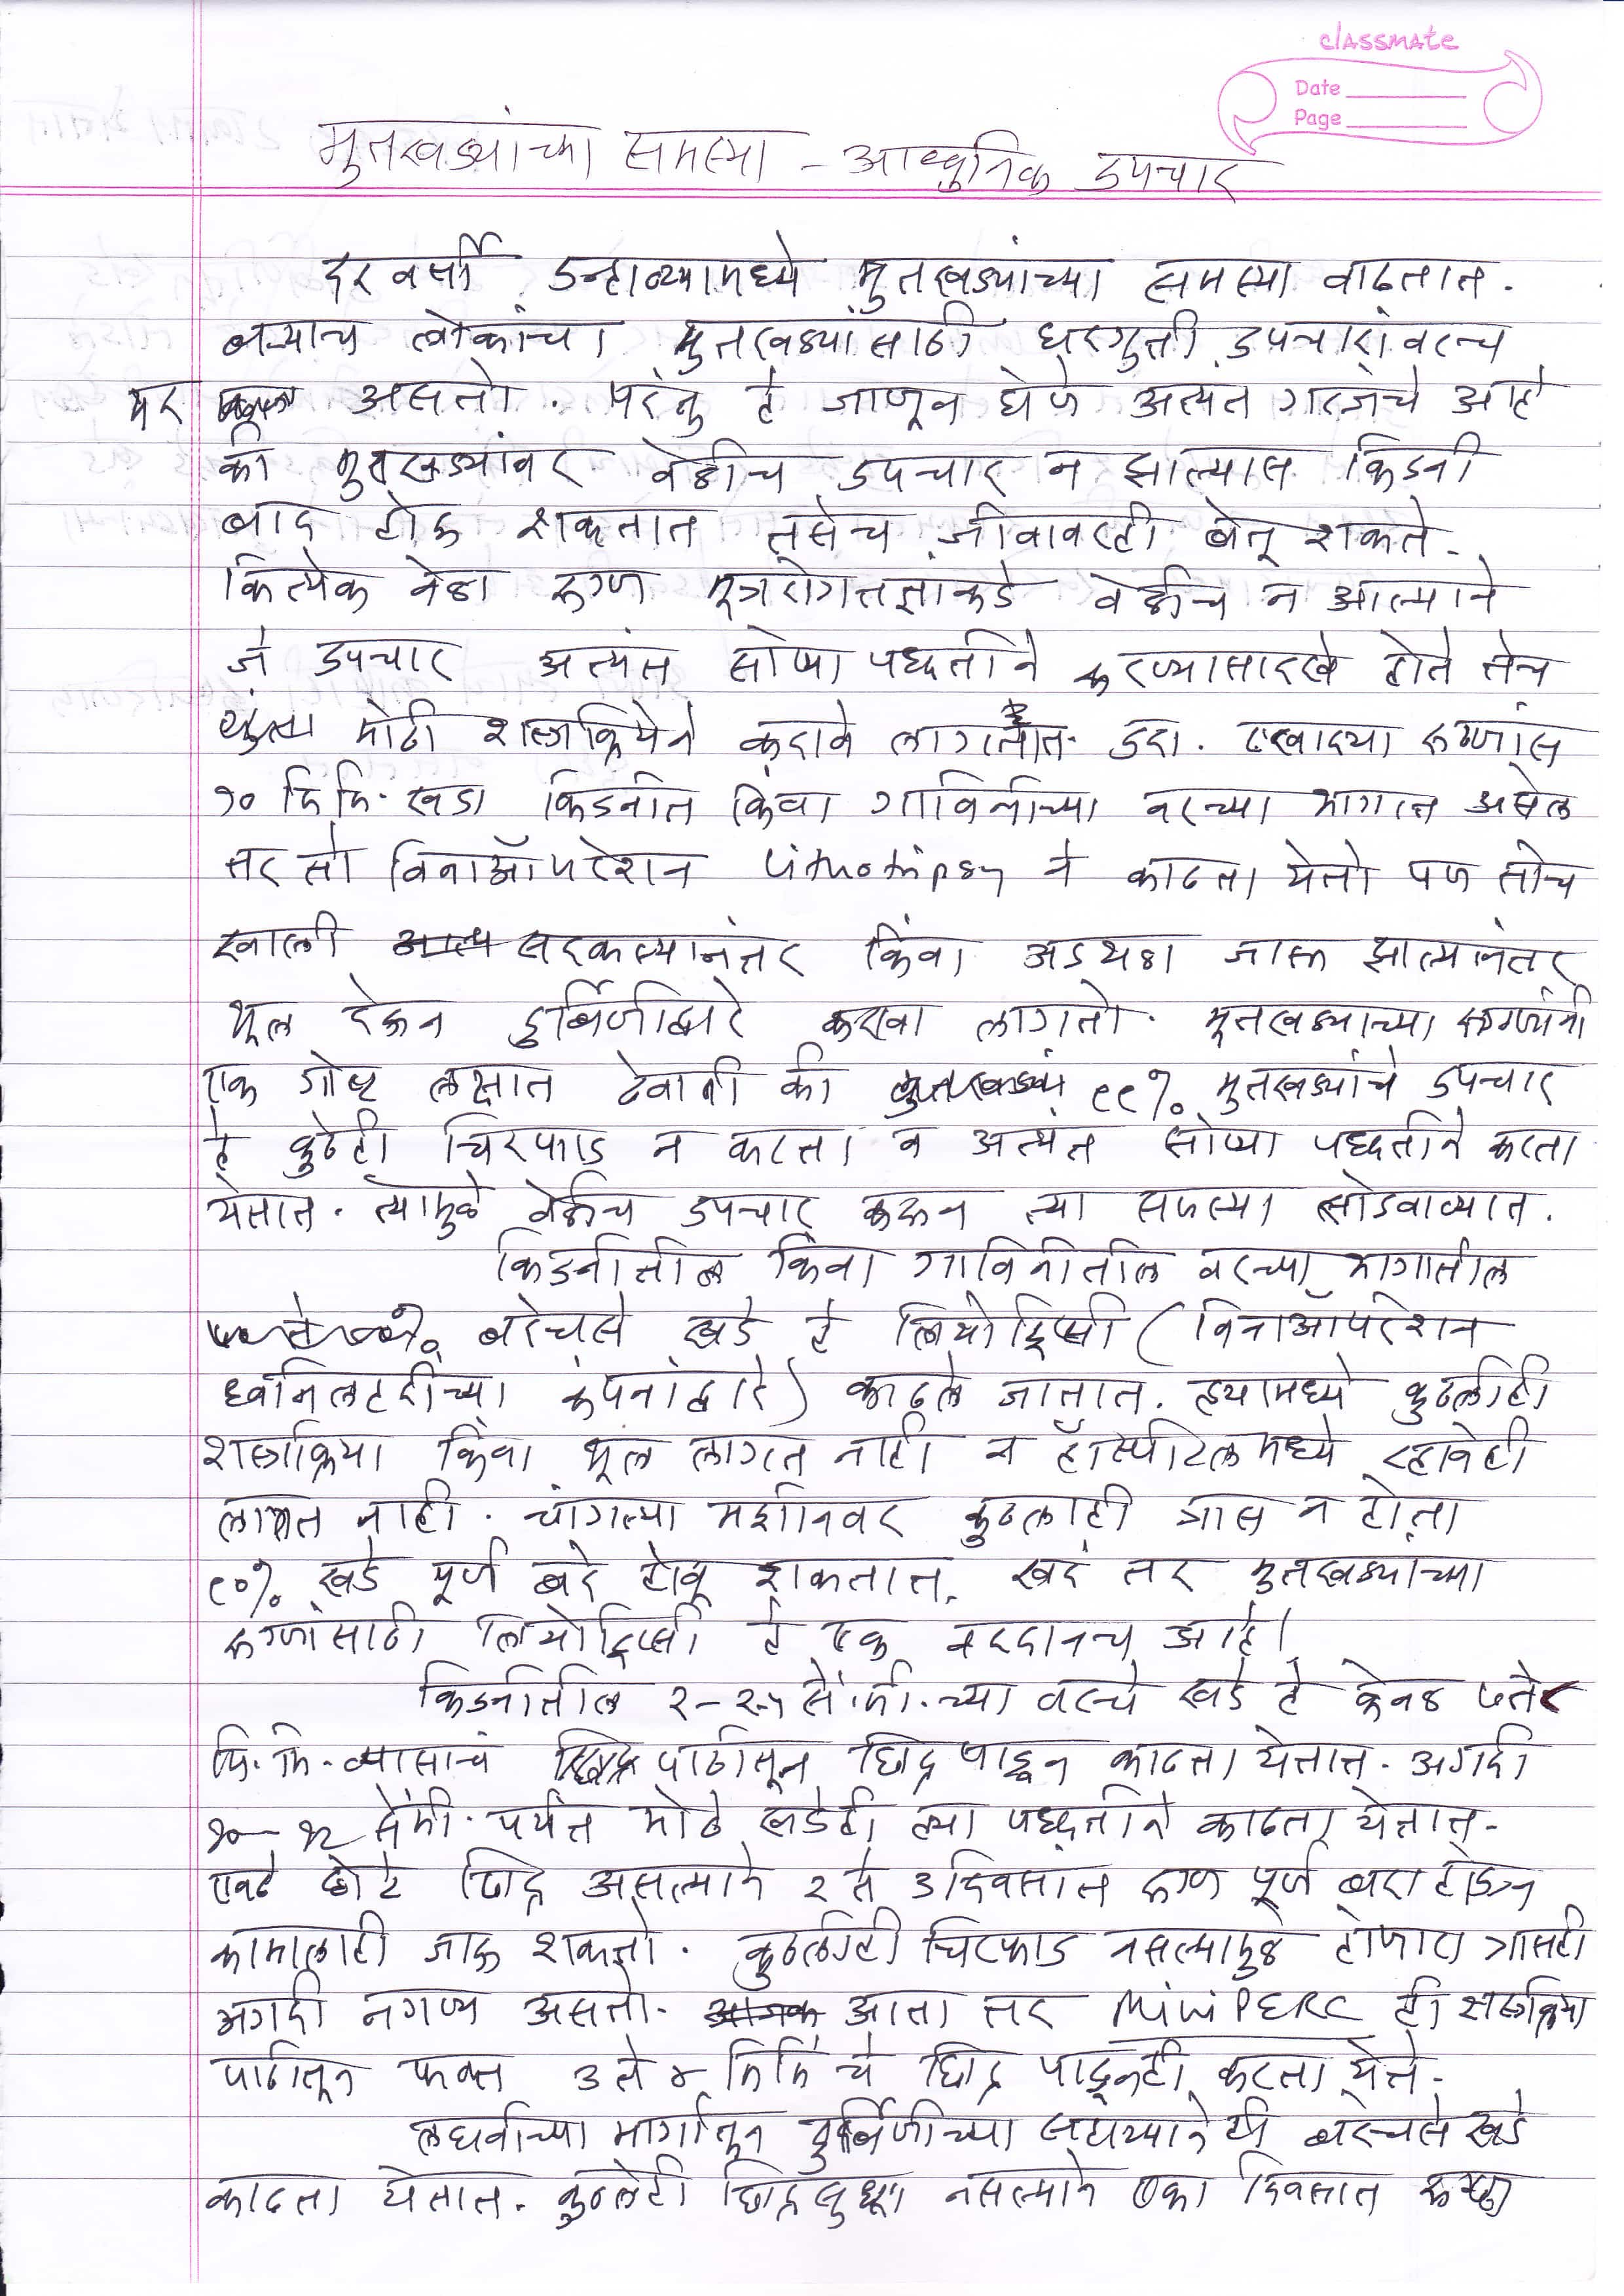 classmate
Date
Page
मुतखड्यांच्या समस्या - आधुनिक उपचार
दरवर्षी उन्हाळ्यामध्ये मुतखड्यांच्या समस्या वाढतात.
बऱ्याच लोकांचा मुतखड्यांसाठी घरगुती उपचारांवरच
भर असतो. परंतु हे जाणून घेणे अत्यंत गरजेचे आहे
की मुतखड्यांवर वेळीच उपचार न झाल्यास किडनी
बाद होऊ शकतात तसेच जीवावरही बेतू शकते.
कित्येक वेळा रुग्ण मूत्ररोगतज्ञांकडे वेळीच न आल्याने
जे उपचार अत्यंत सोप्या पद्धतीने करण्यासारखे होते तेच
मोठी शस्त्रक्रियेने करावे लागतात. उदा. एखाद्या रुग्णांस
१० मि.मि. खडा किडनीत किंवा गाविनीच्या वरच्या भागात असेल
तर तो विनाऑपरेशन Lithotripsy ने काढता येतो पण तोच
खाली सरकल्यानंतर किंवा अडथळा जास्त झाल्यानंतर
भूल देऊन दुर्बिणीद्वारे करावा लागतो. मूतखड्याच्या रुग्णांनी
एक गोष्ट लक्षात ठेवावी की ९९% मुतखड्यांचे उपचार
हे कुठेही चिरफाड न करता व अत्यंत सोप्या पद्धतीने करता
येतात. त्यामुळे वेळीच उपचार करून त्या समस्या सोडवाव्यात.
किडनीतील किंवा गाविनीतील वरच्या भागातील
बरेचसे खडे हे लिथोट्रिप्सी (विनाऑपरेशन
ध्वनिलहरींच्या कंपनांद्वारे) काढले जातात. ह्यामध्ये कुठलीही
शस्त्रक्रिया किंवा भूल लागत नाही न हॉस्पीटलमध्ये रहावेही
लागत नाही. चांगल्या मशीनवर कुठलाही त्रास न होता
९०% खडे पूर्ण बरे होवू शकतात. खरं तर मुतखड्यांच्या
रुग्णांसाठी लिथोट्रिप्सी हे एक वरदानच आहे।
किडनीतील २-२.५ सें.मी.च्या वरचे खडे हे केवळ ७ते८
मि.मि. व्यासाचं पाठीतून छिद्र पाडून काढता येतात. अगदी
१०-१२ सेंमी. पर्यंत मोठे खडेही ह्या पद्धतीने काढता येतात.
एवढे छोटे छिद्र असल्याने २ ते ३ दिवसांत रुग्ण पूर्ण बरा होऊन
कामालाही जाऊ शकतो. कुठलीही चिरफाड नसल्यामुळे होणारा त्रासही
अगदी नगण्य असतो. आता तर MiniPERC ही शस्त्रक्रिया
पाठीतून फक्त ३ ते ४ मिमि चे छिद्र पाडूनही करता येते.
लघवीच्या मार्गातून दुर्बिणीच्या सहाय्यानेही बरेचसे खडे
काढता येतात. कुठलेही छिद्रसुद्धा नसल्याने एका दिवसात रुग्ण